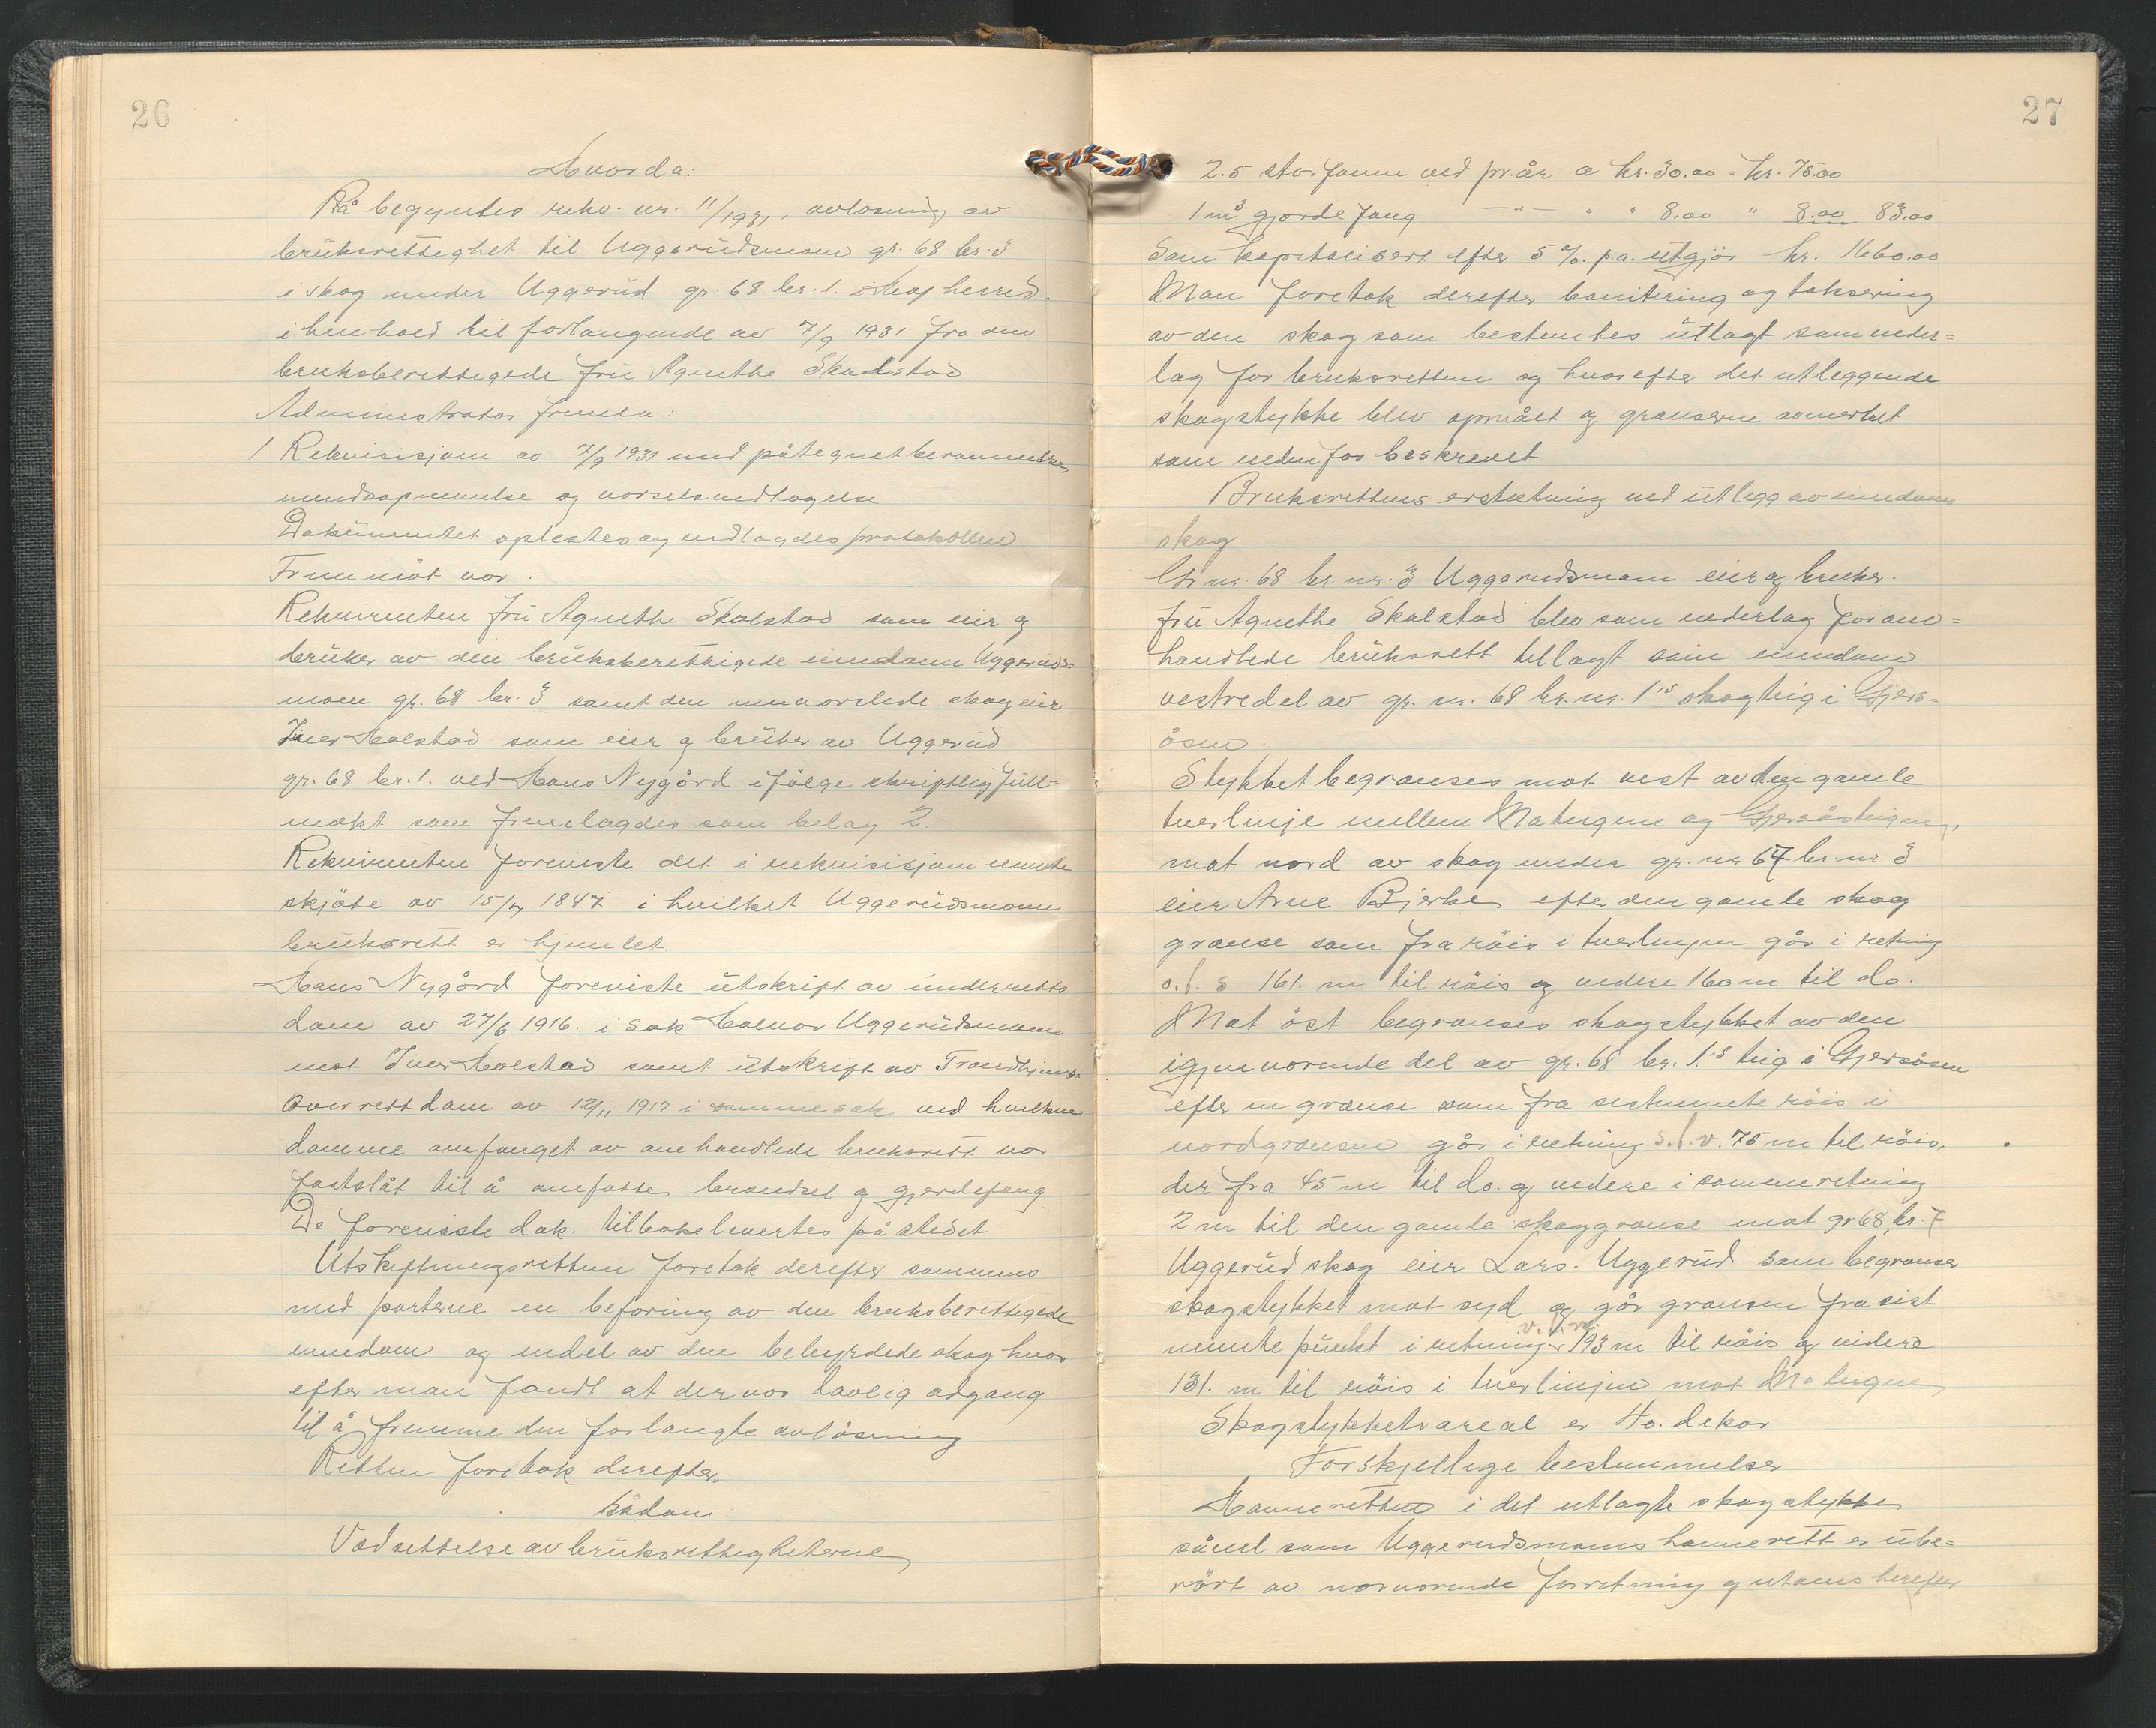 26
Hvorda:
På begyntes rekv. nr. 11/1931, avløsning av
bruksrettighet til Uggerudsmoen gr. 68 br. 3
i skog under Uggerud gr. 68 br. 1. i herred.
i henhold til forlangende av 7/9 1931 fra den
bruksberettigede fru Agnethe Skalstad
Administrator fremla:
1 Rekvisisjon av 7/9 1931 med påtegnet berammelse,
mendsopnevnelse og varselsvedtagelse
Dokumentet oplestes og vedlagdes protokollen
Fremmöt var:
Rekvirenten fru Agnethe Skalstad som eier og
bruker av den bruksberettigede eiendom Uggeruds=
moen gr. 68 br. 3 samt den skogeier
Iver Holstad som eier og bruker av Uggerud
gr. 68 br. 1. ved Hans Nygård ifölge skriftlig full-
makt som fremlagdes som bilag 2.
Rekvirenten foreviste det i rekvisisjonen nevnte
skjöte av 15/ 1847 i hvilket Uggerudsmoens
bruksrett er hjemlet
Hans Nygård foreviste utskrift av underretts
dom av 27/6 1916. i sak Uggerudsmoen
mot Iver Holstad samt utskrift av Trondhjems=
Overrettdom av 12/11 1917 i samme sak ved hvilken
domme omfanget av omhandlede bruksrett var
fastslåt til å omfatte brendsel og gjerdefang
De foreviste dok. tilbakelevertes på stedet
Utskiftningsretten foretok derefter sammens
med parterne en befaring av den bruksberettigede
eiendom og endel av den bebyrdede skog hvor
efter man fandt at der var lovlig adgang
til å fremme den forlangte avlösning
Retten foretok derefter,
sådan:
Verdsettelse av bruksrettigheterne
27
2.5 storfavn ved pr. år a kr. 30.00 = kr. 75.00
1 m³ gjerdefang —"— " " 8.00 " 8.00 83.00
Som kapitalisert efter 5 % p.a. utgjör kr. 1660.00
Man foretok derefter bonitering og taksering
av den skog som bestemtes utlagt som veder=
lag for bruksretten og hvorefter det utleggende
skogstykke blev opmålt og grensene avmerket
som nedenfor beskrevet
Bruksrettens erstatning ved utlegg av eiendoms
skog
Gr. nr. 68 br. nr. 3 Uggerudsmoen eier og bruker.
fru Agnethe Skalstad blev som vederlag for om=
handlede bruksrett tillagt sin eiendom
vestre del av gr. nr. 68 br. nr. 1's skogteig i Gjers-
åsen.
Stykket begrenses mot vest av den gamle
tverlinje mellem Moteigene og Gjersåsteigene,
mot nord av skog under gr. nr 67 br. nr 3
eier Arne Bjerke efter den gamle skog
grense som fra röis i tverlinjen går i retning
o.t.s 161. m til röis og videre 160 m til do.
Mot öst begrenses skogstykket av den
igjenverende del av gr. 68 br. 1.'s teig i Gjersåsen
efter en grense som fra sistnevnte röis i
nordgrensen går i retning s.t.v. 75 m til röis.
der fra 45 m til do. og videre i samme retning
2 m til den gamle skoggrense mot gr. 68, br. 7
Uggerud skog eier Lars. Uggerud som begrenser
skogstykket mot syd og går grensen fra sist
nevnte punkt i retning v.t.n. 193 m til röis og videre
131. m til röis i tverlinjen mot Moteigene,
Skogstykkets areal er 40. dekar
Forskjellige bestemmelser
Havneretten i det utlagte skogstykke
såvel som Uggerudsmoens havnerett er ube=
rört av nærværende forretning og utöves herefter